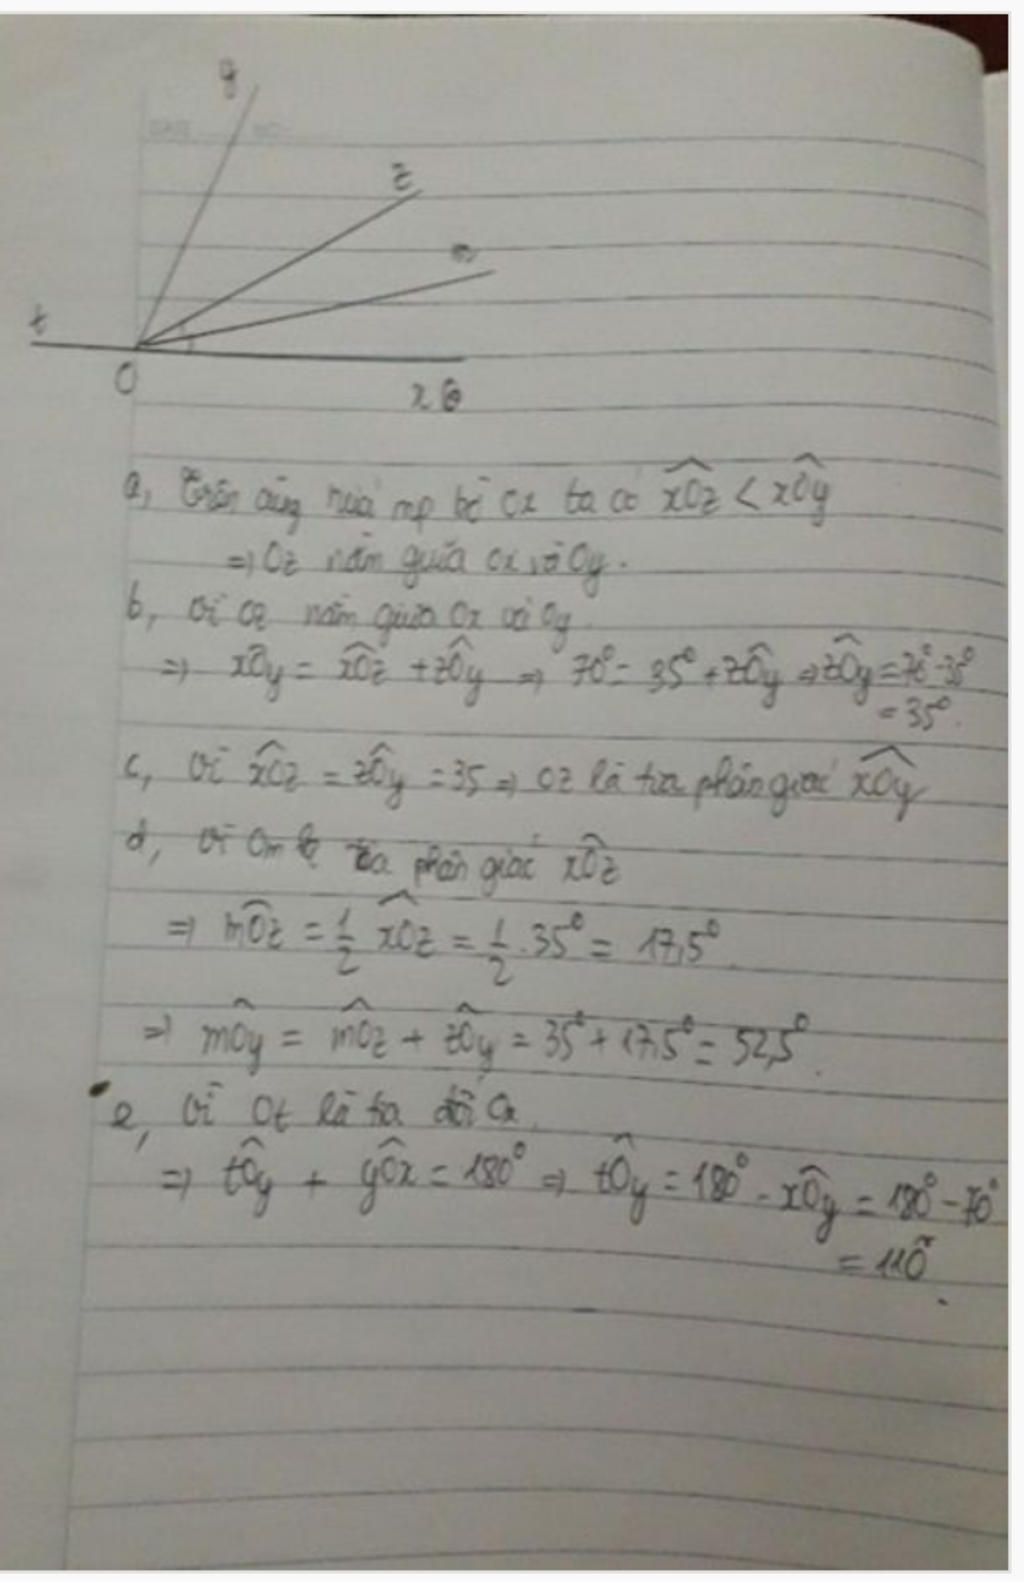 y
z
m
t
O
x
a, Trên cùng nửa mp bờ Ox ta có xÔz < xÔy
=> Oz nằm giữa Ox và Oy.
b, Vì Oz nằm giữa Ox và Oy
=> xÔy = xÔz + zÔy => 70° = 35° + zÔy => zÔy = 70° - 35°
= 35°.
c, Vì xÔz = zÔy = 35 => Oz là tia phân giác xÔy
d, Vì Om là tia phân giác xÔz
=> mÔz = 1/2 xÔz = 1/2 . 35° = 17,5°.
=> mÔy = mÔz + zÔy = 35° + 17,5° = 52,5°.
e, Vì Ot là tia đối Ox.
=> tÔy + yÔx = 180° => tÔy = 180° - xÔy = 180° - 70°
= 110°.